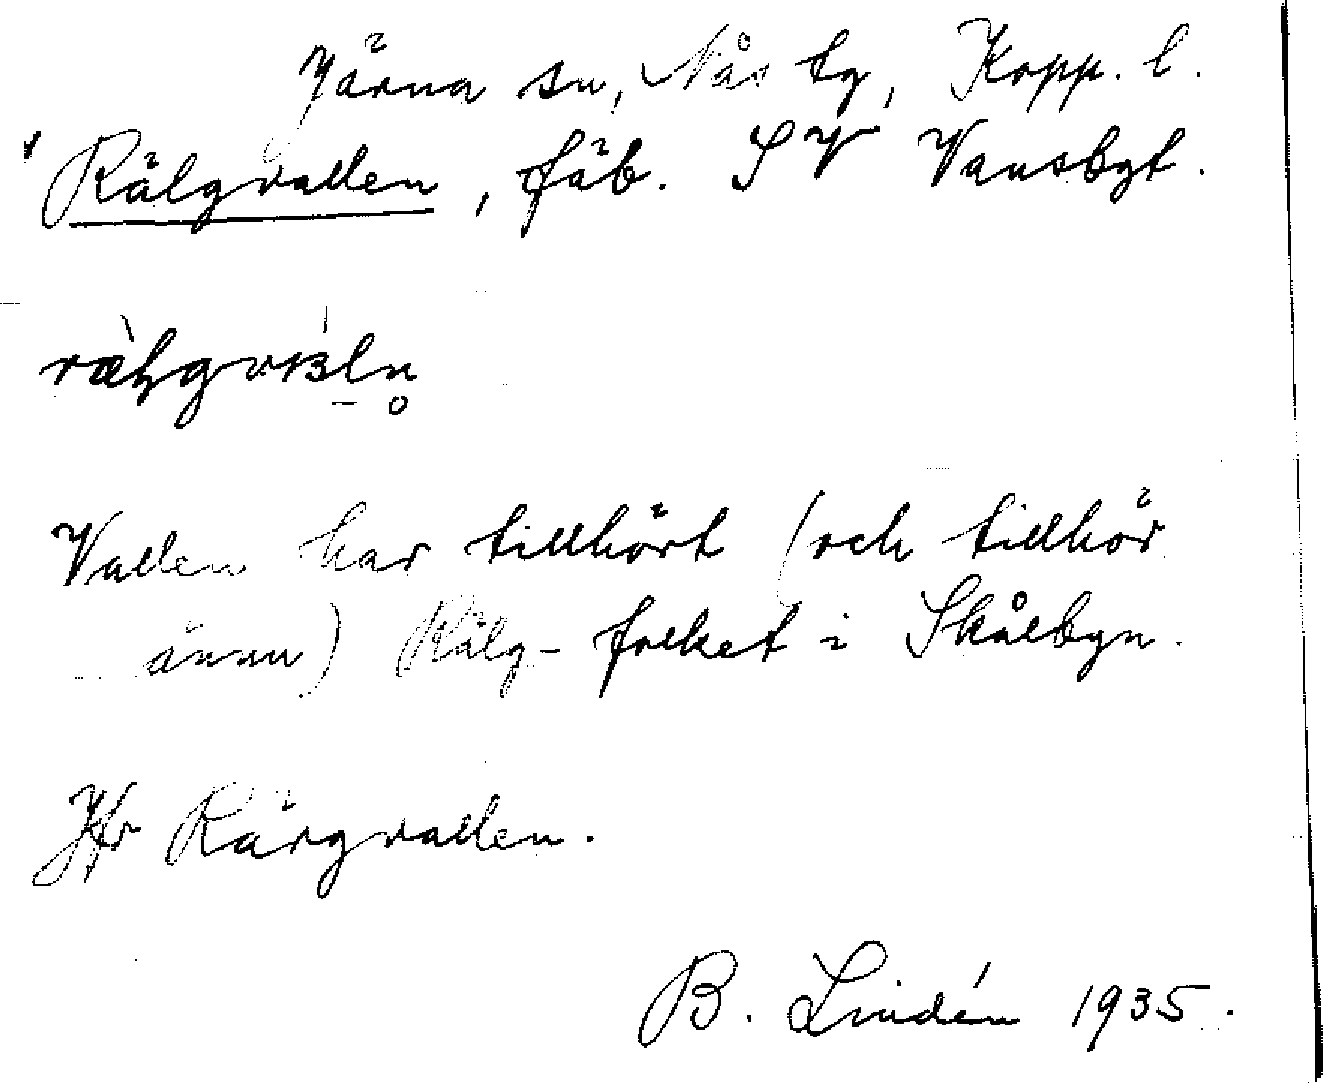 Järna sn, Nås tg, Kopp. l.
Rälgvallen, fäb. SV Vansbgt.
Vallen har tillhört (och tillhör
ännu) Rälg-folket i Skålbyn.
Jfr Rärgvallen.
B. Lindén 1935.